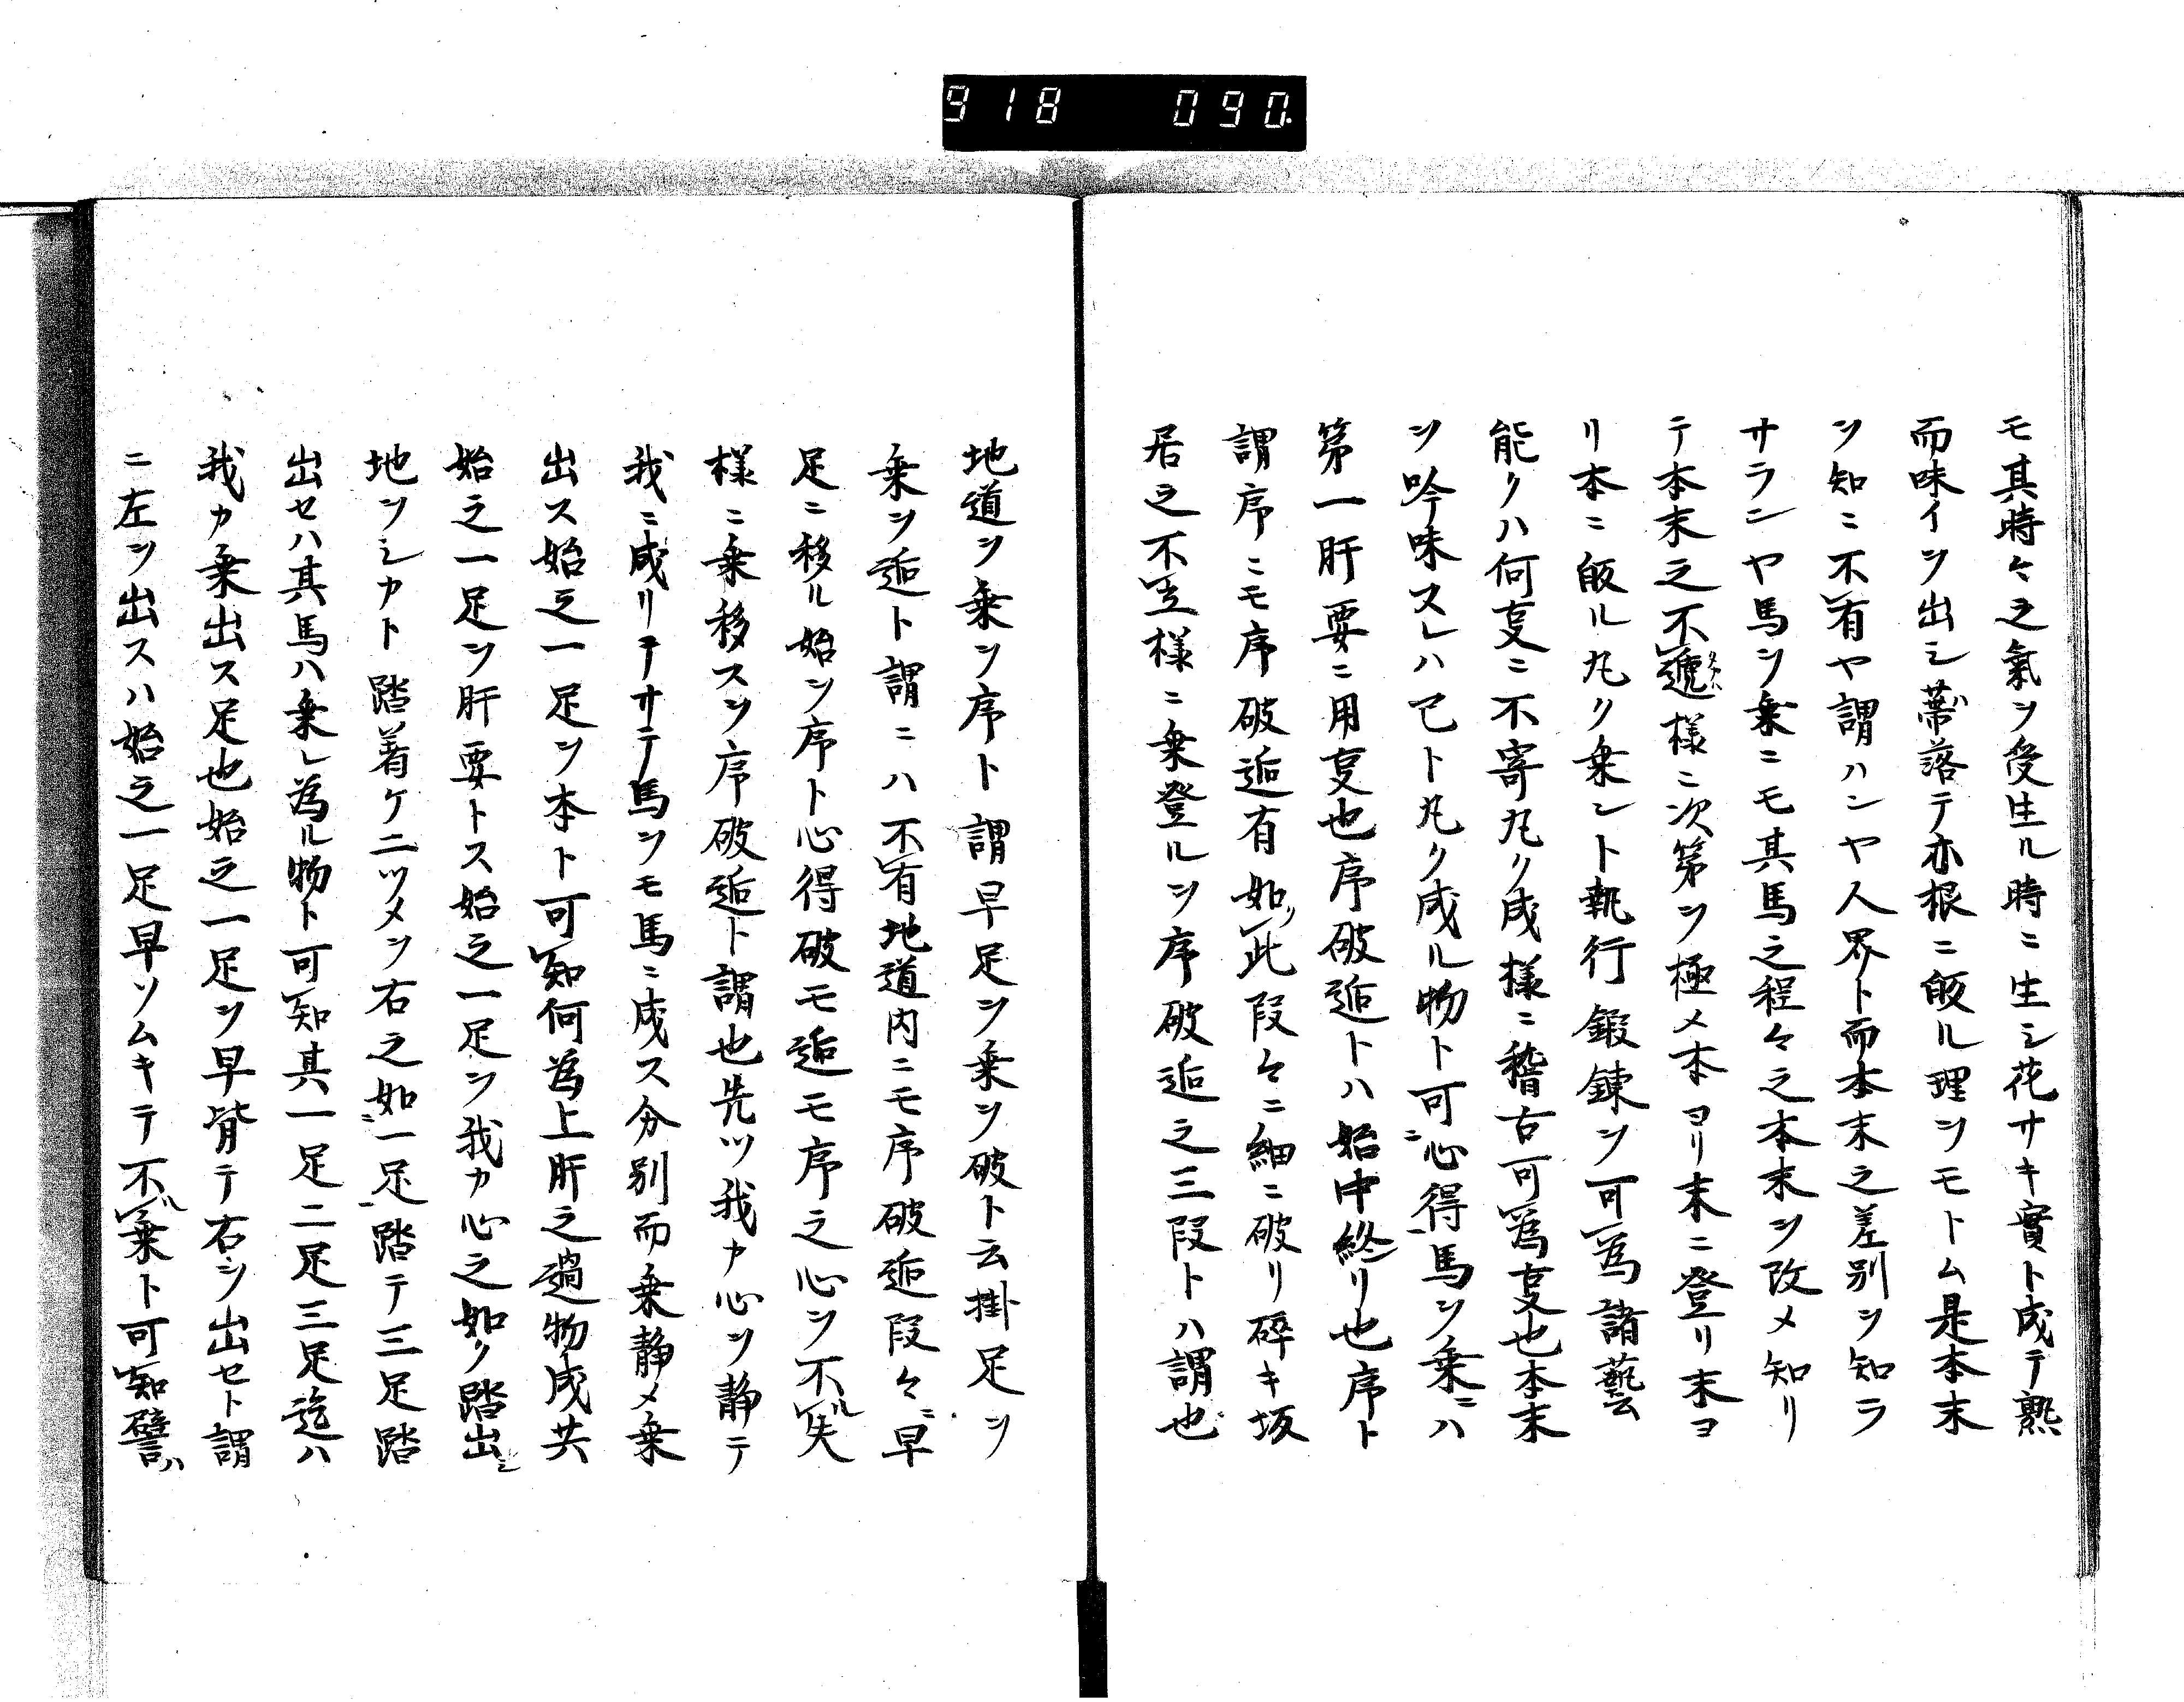 918 090.
モ其時々之氣ヲ受生ル時ニ生シ花サキ實ト成テ熟
而味イヲ出シ蔕落テ亦根ニ皈ル理ヲモトム是本末
ヲ知ニ不有ヤ謂ハンヤ人界ト而本末之差別ヲ知ラ
サランヤ馬ヲ乗ニモ其馬之程々之本末ヲ改メ知リ
テ本末之不遞様ニ次第ヲ極メ本ヨリ末ニ登リ末ヨ
リ本ニ皈ル丸ク乗ント執行鍛錬ヲ可為諸藝云
能クハ何叓ニ不寄丸ク成様ニ稽古可為叓也本末
ヲ吟味スレハ已ト丸ク成ル物ト可心得馬ヲ乗ニハ
第一肝要ニ用叓也序破逅トハ始中終リ也序ト
謂序ニモ序破逅有如此段々ニ細ニ破リ碎キ坂
居之不 様ニ乗登ルヲ序破逅之三段トハ謂也
地道ヲ乗ヲ序ト謂早足ヲ乗ヲ破ト云掛足ヲ
乗ヲ逅ト謂ニハ不有地道内ニモ序破逅段々ニ早
足ニ移ル始ヲ序ト心得破モ逅モ序之心ヲ不失
様ニ乗移スヲ序破逅ト謂也先ツ我カ心ヲ静テ
我ニ成リテサテ馬ヲモ馬ニ成ス分別而乗静メ乗
出ス始之一足ヲ本ト可知何為上肝之 物成共
始之一足ヲ肝要トス始之一足ヲ我カ心之如ク踏出シ
地ヲシカト踏着ケニツメヲ右之如ニ一足踏テ三足踏
出セハ其馬ハ乗レ為ル物ト可知其一足二足三足迄ハ
我カ乗出ス足也始之一足ヲ早背テ右ヲ出セト謂
ニ左ヲ出スハ始之一足早ソムキテ不乗ト可知譬ハ